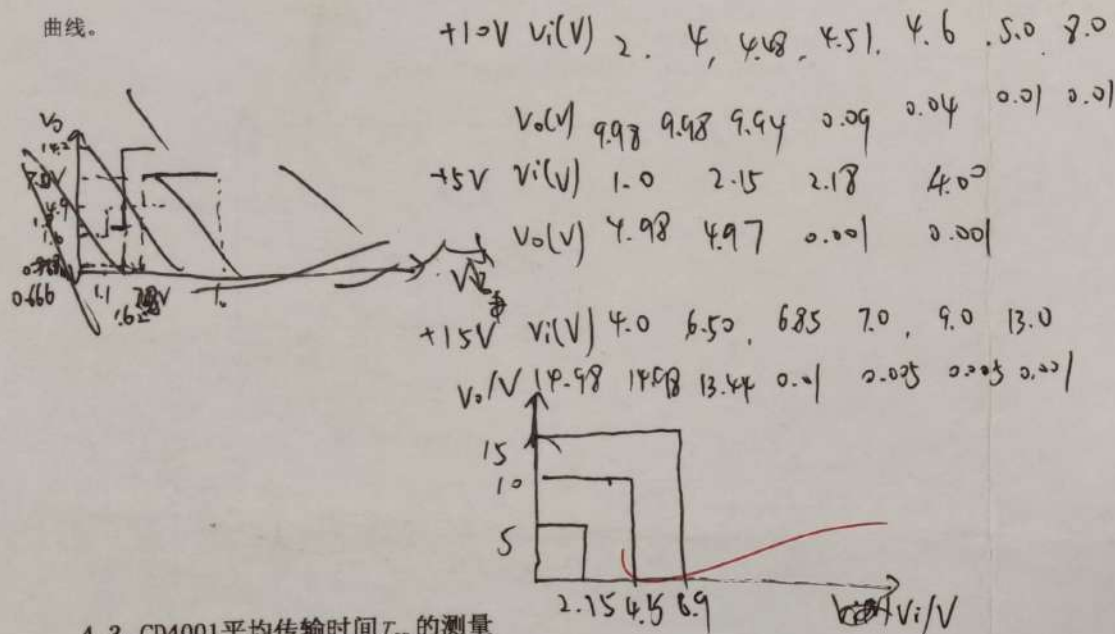 曲线。
+10V Vi(V) 2. 4, 4.48, 4.51, 4.6 .5.0 8.0
Vo(V) 9.98 9.98 9.94 0.09 0.04 0.01 0.01
+5V Vi(V) 1.0 2.15 2.18 4.00
Vo(V) 4.98 4.97 0.001 0.001
+15V Vi(V) 4.0 6.50, 6.85 7.0, 9.0 13.0
Vo/V 14.98 14.98 13.44 0.01 0.005 0.005 0.001
Vo
14.2
4.9
0.666 1.1
15
10
5
2.15 4.5 6.9 Vi/V
4.3 CD4001平均传输时间T 的测量